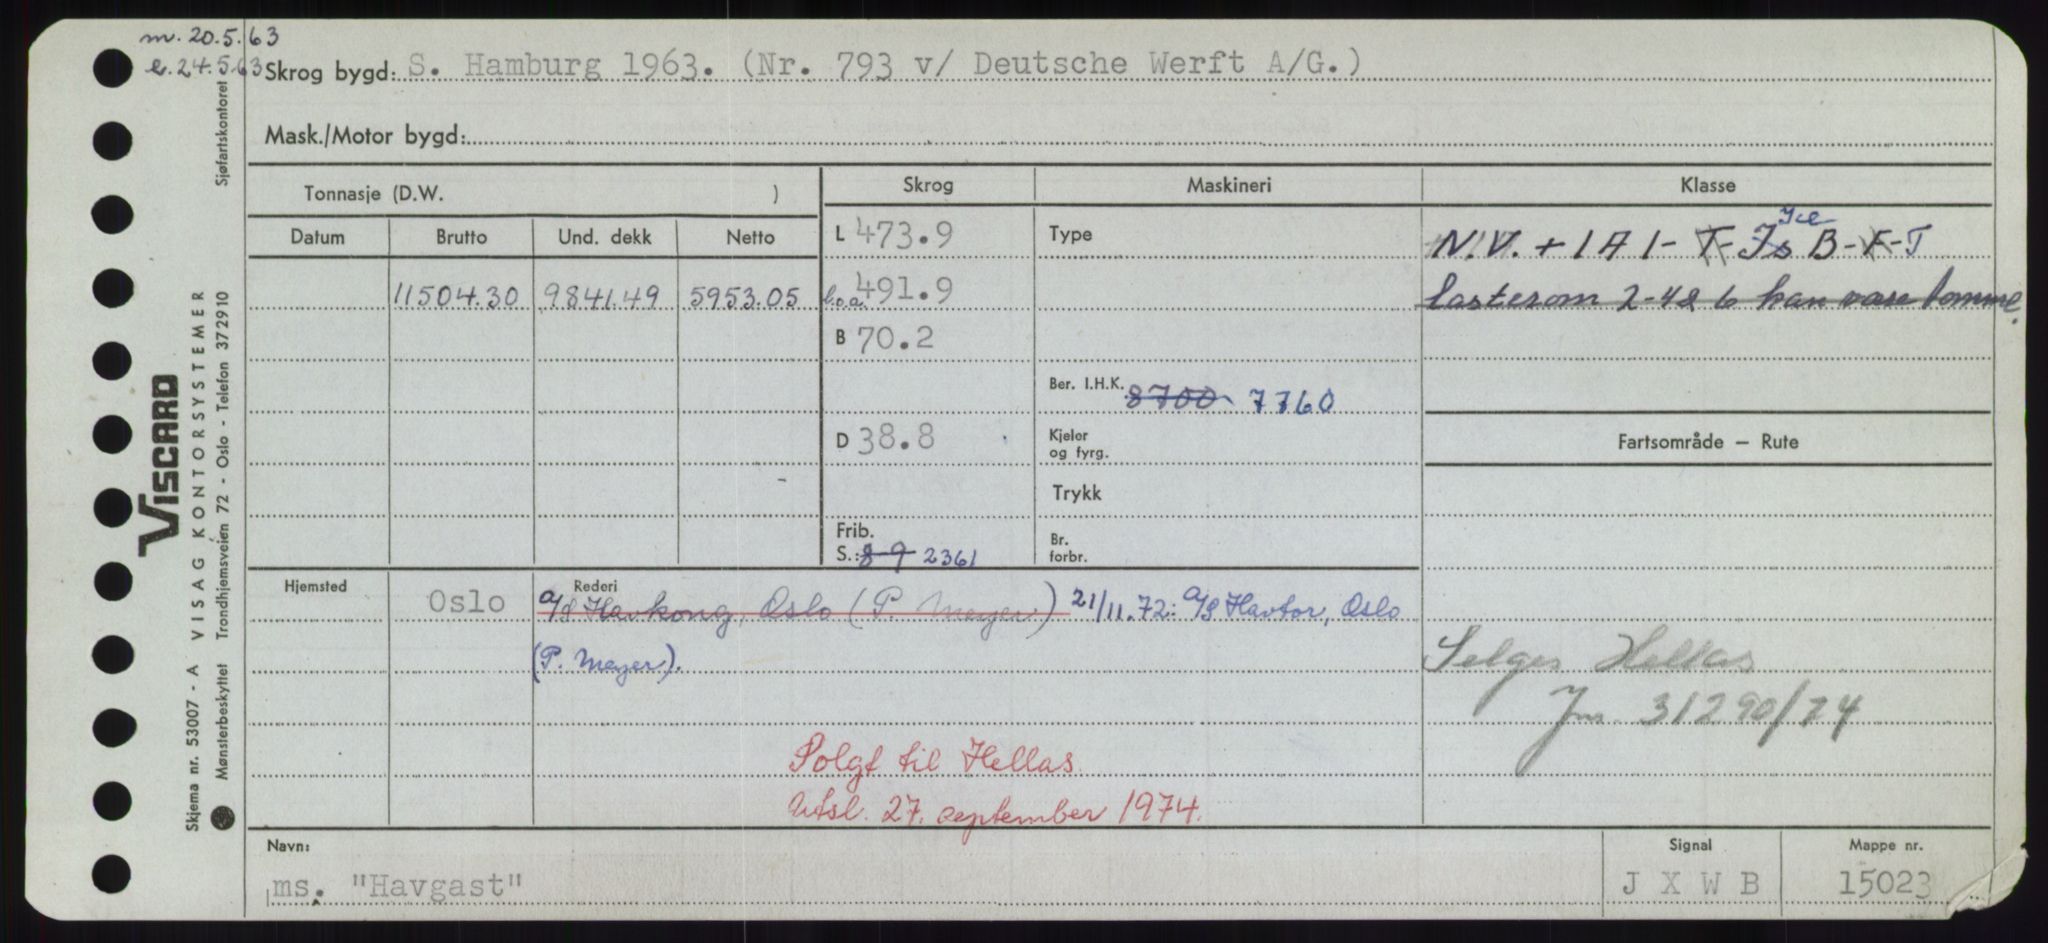 m. 20.5.63
e. 24.5.63
Skrog bygd: S. Hamburg 1963. (Nr. 793 v/ Deutsche Werft A/G.)
Mask./Motor bygd:
Tonnasje (D.W. )
Skrog
Maskineri
Klasse
Datum
Brutto
Und. dekk
Netto
L 473.9
Type
Ice
N.V. + 1 A 1 - T- Is B - F - T
11504.30 9841.49 5953.05
l.o.a. 491.9
Lasterom 2-4 & 6 kan være tomme.
B 70.2
Ber. I.H.K. 8700 7760
D 38.8
Kjeler
og fyrg.
Fartsområde – Rute
Trykk
Frib.
S.: 8-9 2361
Br.
forbr.
Hjemsted
Oslo
Rederi
A/S Havkong, Oslo (P. Meyer) 21/11.72: A/S Havtor, Oslo
(P. Meyer).
Selges Hellas
Jnr. 31290/74
Solgt til Hellas.
Utsl. 27. september 1974.
Navn:
ms. "Havgast"
Signal
J X W B
Mappe nr.
15023
VISCARD
Skjema nr. 53007 - A VISAG KONTORSYSTEMER
Mønsterbeskyttet Trondhjemsveien 72 - Oslo - Telefon 372910 Sjøfartskontoret